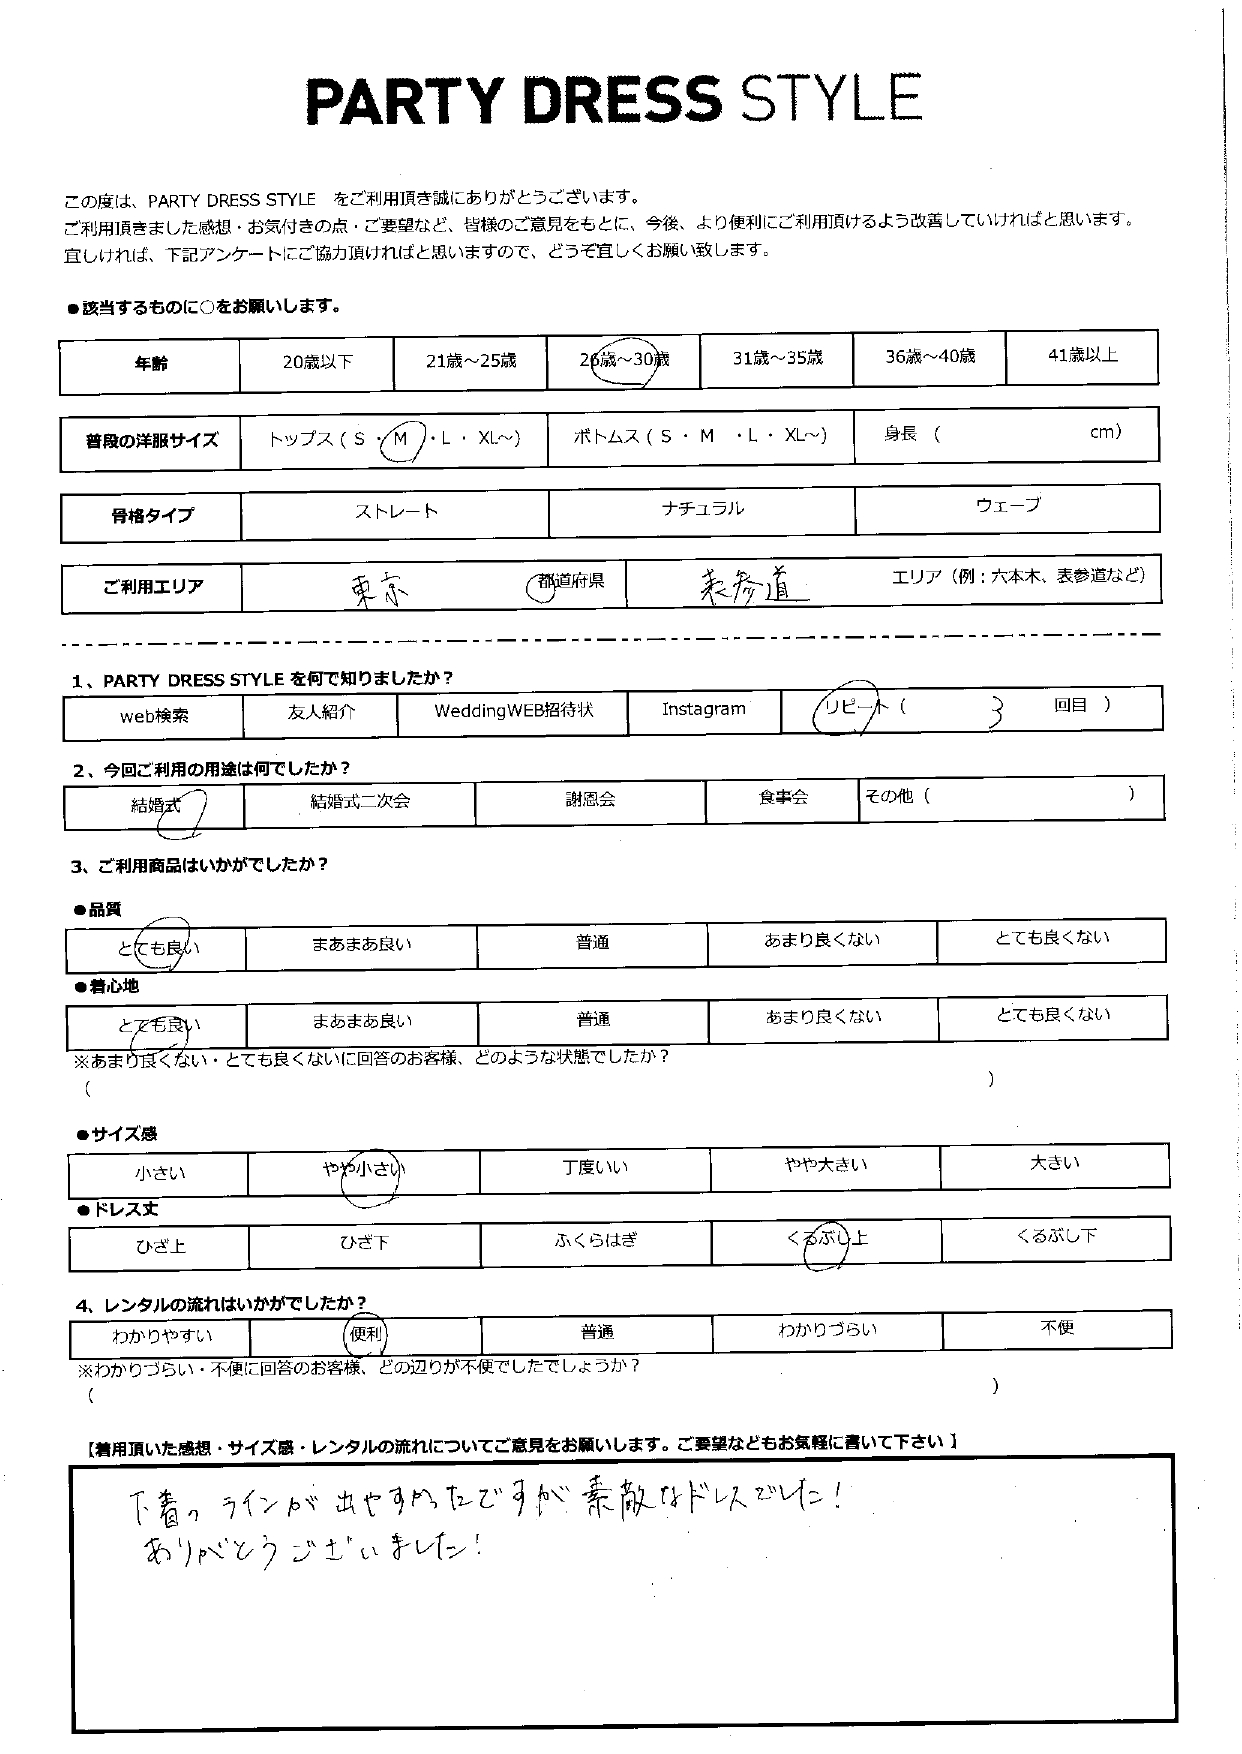 PARTY DRESS STYLE
この度は、PARTY DRESS STYLE をご利用頂き誠にありがとうございます。
ご利用頂きました感想・お気付きの点・ご要望など、皆様のご意見をもとに、今後、より便利にご利用頂けるよう改善していければと思います。
宜しければ、下記アンケートにご協力頂ければと思いますので、どうぞ宜しくお願い致します。
●該当するものに○をお願いします。
年齢 20歳以下 21歳～25歳 26歳～30歳 31歳～35歳 36歳～40歳 41歳以上
普段の洋服サイズ トップス（S ・ M ・L ・ XL～） ボトムス（S ・ M ・L ・ XL～） 身長（ cm）
骨格タイプ ストレート ナチュラル ウェーブ
ご利用エリア 東京 都道府県 表参道 エリア（例：六本木、表参道など）
1、PARTY DRESS STYLE を何で知りましたか？
web検索 友人紹介 WeddingWEB招待状 Instagram リピート（ 3 回目 ）
2、今回ご利用の用途は何でしたか？
結婚式 結婚式二次会 謝恩会 食事会 その他（ ）
3、ご利用商品はいかがでしたか？
●品質
とても良い まあまあ良い 普通 あまり良くない とても良くない
●着心地
とても良い まあまあ良い 普通 あまり良くない とても良くない
※あまり良くない・とても良くないに回答のお客様、どのような状態でしたか？
（ ）
●サイズ感
小さい やや小さい 丁度いい やや大きい 大きい
●ドレス丈
ひざ上 ひざ下 ふくらはぎ くるぶし上 くるぶし下
4、レンタルの流れはいかがでしたか？
わかりやすい 便利 普通 わかりづらい 不便
※わかりづらい・不便に回答のお客様、どの辺りが不便でしたでしょうか？
（ ）
【着用頂いた感想・サイズ感・レンタルの流れについてご意見をお願いします。ご要望などもお気軽に書いて下さい 】
下着のラインが出やすかったですが素敵なドレスでした！
ありがとうございました！